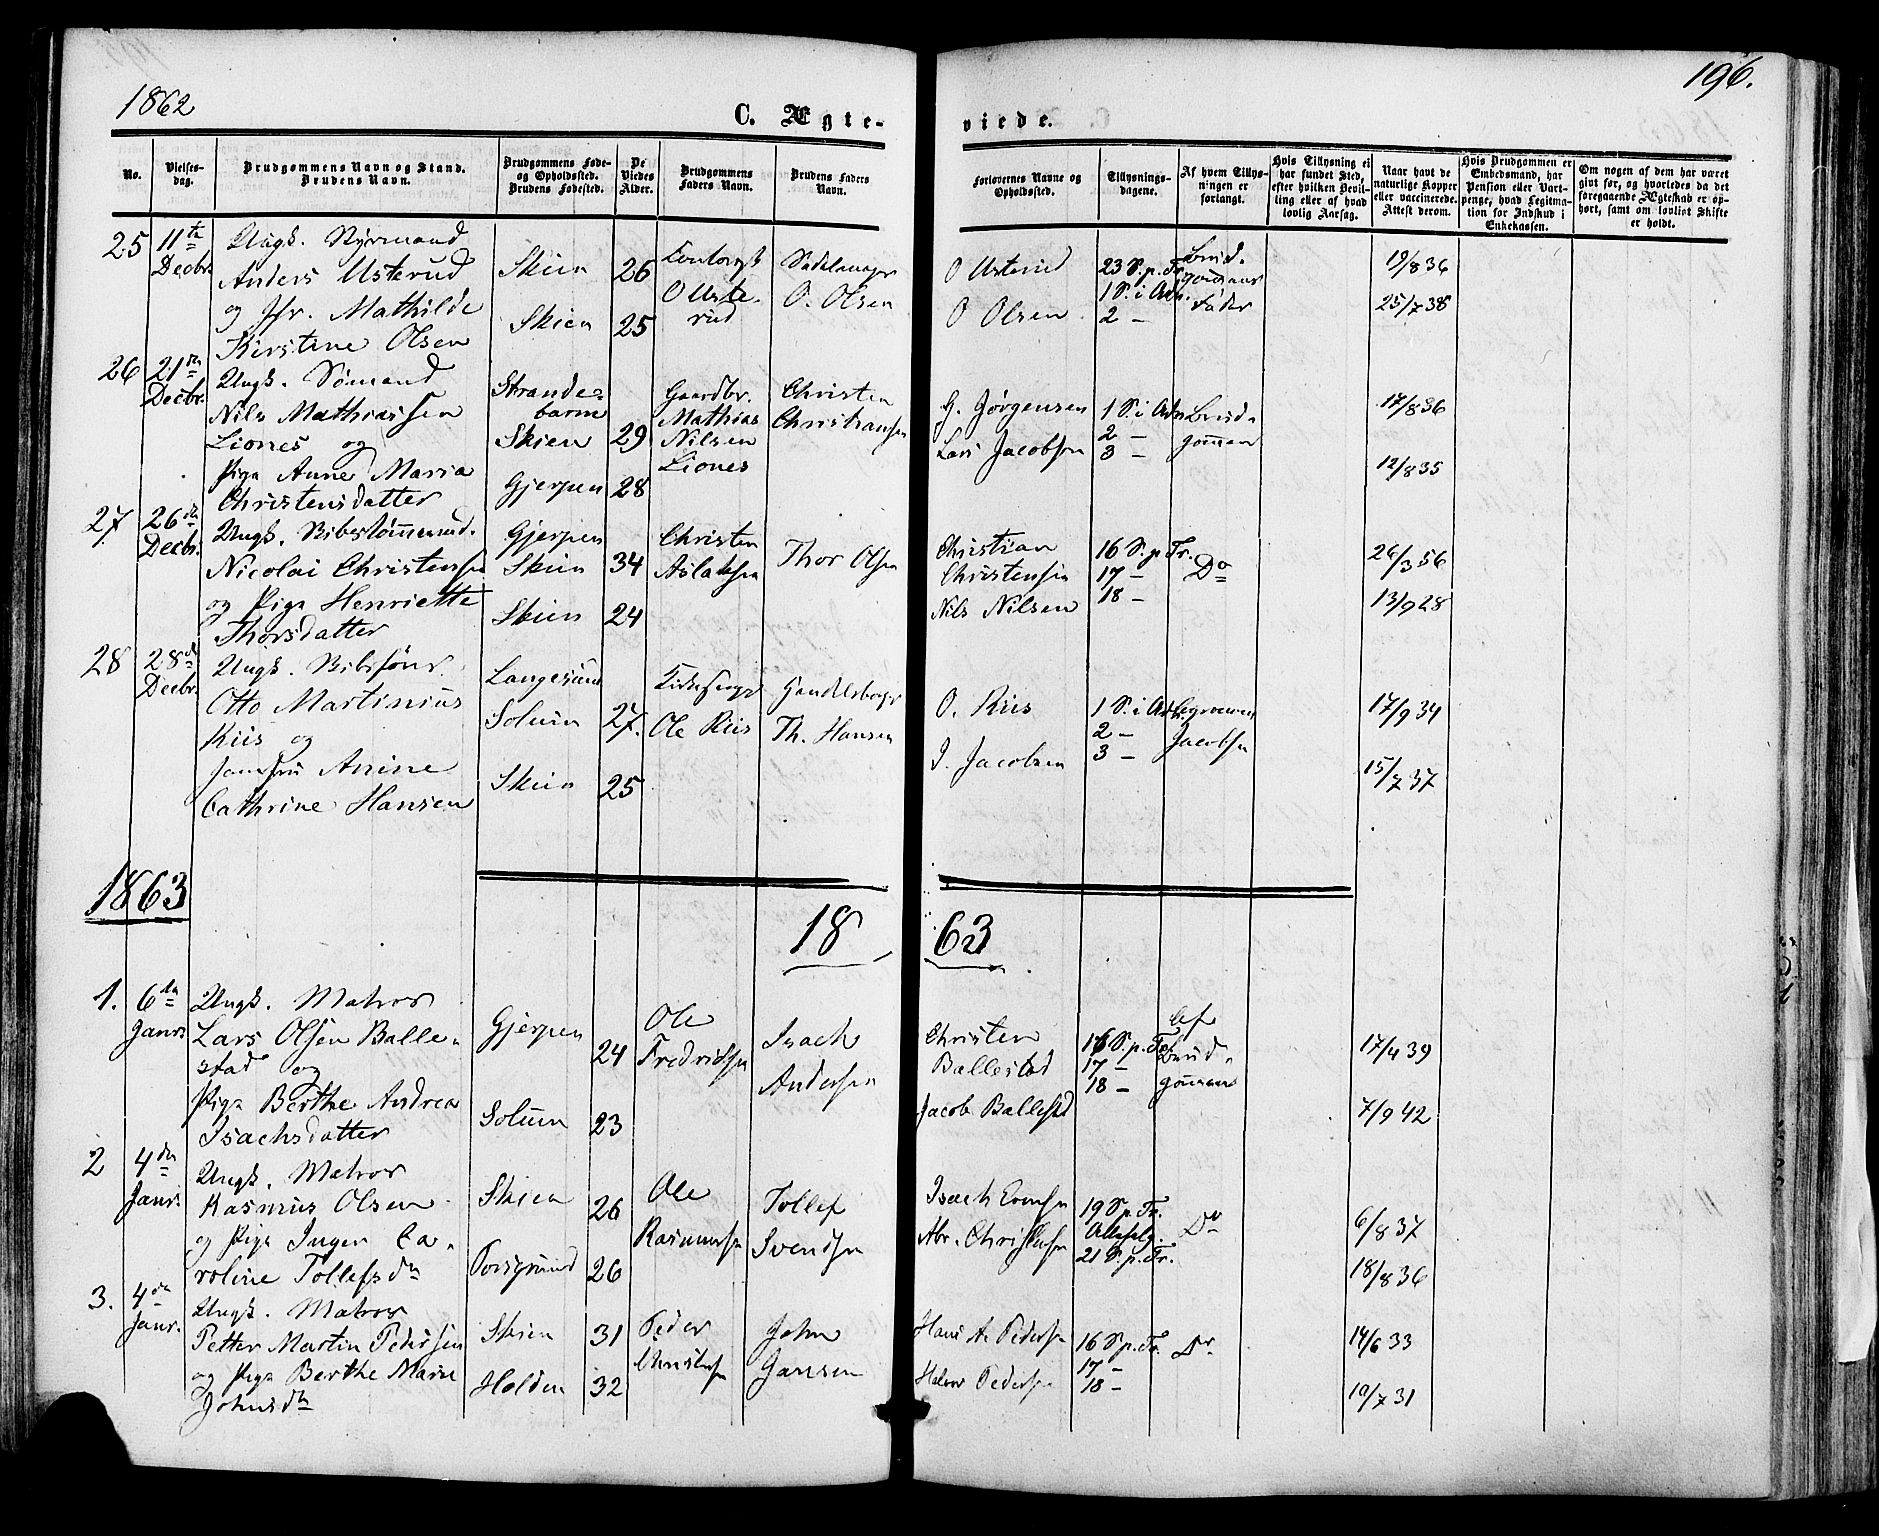 1862
196.
C. Ægte-
viede.
No.
Vielses-
dag.
Brudgommens Navn og Stand.
Brudens Navn.
Brudgommens Føde-
og Opholdssted.
Brudens Fødested.
De
Viedes
Alder.
Brudgommens
Faders Navn.
Brudens Faders
Navn.
Forlovernes Navne og
Opholdssted.
Tillysnings-
dagene.
Af hvem Tillys-
ningen er
forlangt.
Hvis Tillysning ei
har fundet Sted,
efter hvilken Bevil-
ling eller af hvad
lovlig Aarsag.
Naar havt de
naturlige Kopper
eller vaccinerede.
Attest derom.
Hvis Brudgommen er
Embedsmand, har
Pension eller Vart-
penge, hvad Legitima-
tion for Indskud i
Enkekassen.
Om nogen af dem har været
givt før, og hvorledes da det
foregaaende Ægteskab er op-
hørt, samt om lovligt Skifte
er holdt.
25 11te Decbr.
Ungk. Styrmand
Anders Usterud
og Jfr. Mathilde
Kirstine Olsen
Skien 26
Skien 25
O Uste-
rud
O. Olsen
O Usterud
O Olsen
23 S. p. Tr.
1 S. i Adv.
2 —
Brud-
gommens
Fader
19/8 36
25/7 38
26 21de Decbr.
Ungk. Sømand
Nils Mathiassen
Liones og
Pige Anne Maria
Christensdatter
Strande-
barm
Skien 29
Gjerpen 28
Gaardbr.
Mathias
Nilsen
Liones
Christen
Christiansen
G. Jørgensen
Lars Jacobsen
1 S. i Adv.
2 —
3 —
Brud-
gommen
17/8 36
12/8 35
27 26de Decbr.
Ungk.
Nicolai Christensen
og Pige Henriette
Thorsdatter
Gjerpen
Skien 34
Skien 24
Christen
Aslaksen
Thor Olsen
Christian
Christensen
Nils Nilsen
16 S. p. Tr.
17 —
18 —
Do
26/3 56
13/9 28
28 28de Decbr.
Ungk.
Otto Martinius
Riis og
Jomfru Anine
Cathrine Hansen
Langesund
Solum 27.
Skien 25
Ole Riis
Handelsborger
Th. Hansen
O. Riis
J. Jacobsen
1 S. i Adv.
2 —
3 —
Jacobsen
17/9 34
15/7 37
1863
18 63
1. 6te Janr.
Ungk. Matros
Lars Olsen Balle-
stad og
Pige Berthe Andrea
Isachsdatter
Gjerpen 24
Solum 23
Ole
Fredriksen
Isach
Andersen
Christen
Ballestad
Jacob Ballestad
16 S. p. Tr.
17 —
18 —
Af
Brud-
gommen
17/4 39
7/9 42
2 4de Janr.
Ungk. Matros
Rasmus Olsen
og Pige Inger Ca-
roline Tollefsdr
Skien 26
Porsgrund 26
Ole
Rasmussen
Tollef
Svendsen
Isach Evensen
Abr. Christensen
19 S p. Tr.
21 S. p. Tr.
Do
6/8 37
18/8 36
3. 4de Janr.
Ungk. Matros
Petter Martin Pedersen
og Pige Berthe Marie
Johnsdr
Skien 31
Holden 32
Peder
Christensen
John
Jansen
Hans A. Pedersen
Halvor Pedersen
16 S p. Tr.
17 —
18 —
Do
14/6 33
19/7 31